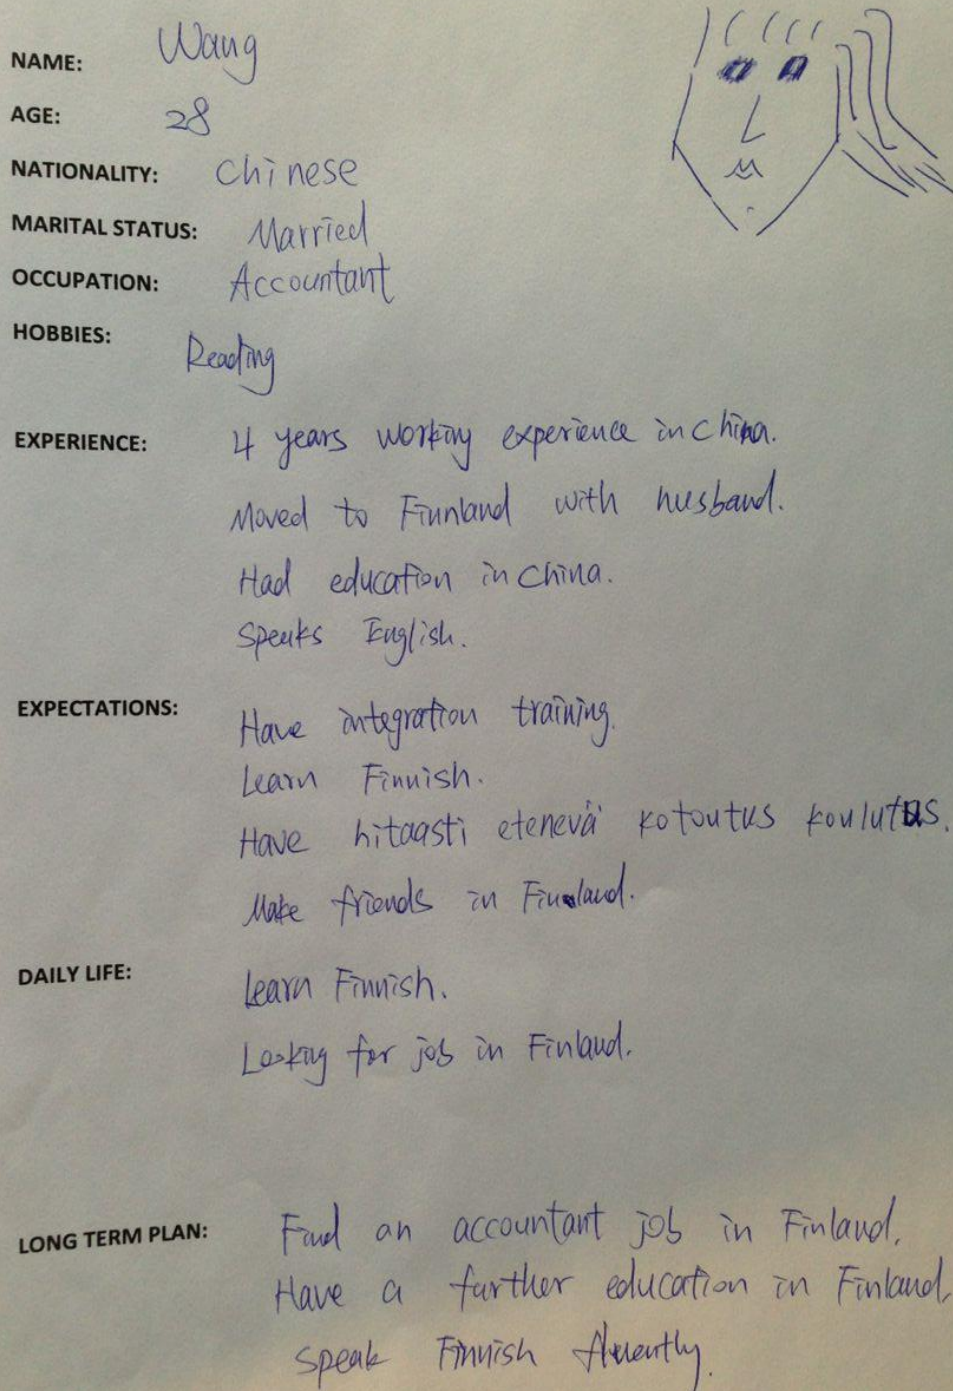 NAME: Wang
AGE: 28
NATIONALITY: Chinese
MARITAL STATUS: Married
OCCUPATION: Accountant
HOBBIES: Reading
EXPERIENCE: 4 years working experience in China.
Moved to Finnland with husband.
Had education in China.
Speaks English.
EXPECTATIONS: Have integration training.
Learn Finnish.
Have hitaasti etenevä kotoutus koulutus.
Make friends in Finland.
DAILY LIFE: Learn Finnish.
Looking for job in Finland.
LONG TERM PLAN: Find an accountant job in Finland.
Have a further education in Finland.
Speak Finnish fluently.